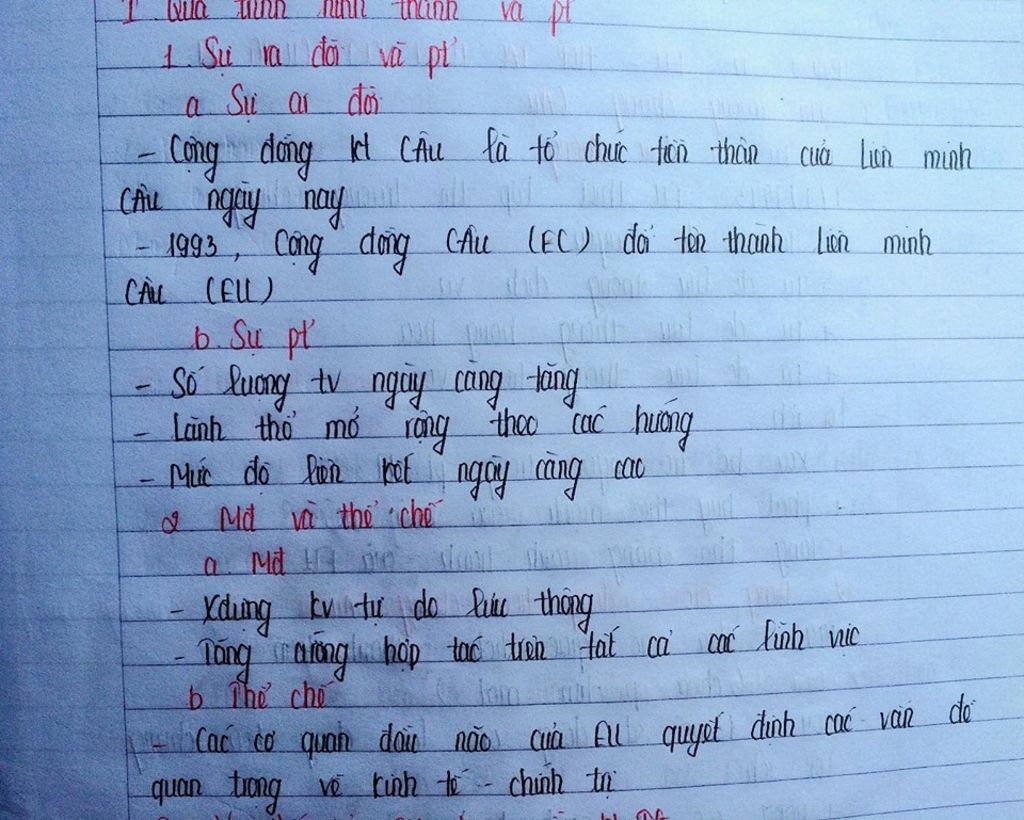 I Quá trình hình thành và pt
1. Sự ra đời và pt
a Sự ra đời
- Cộng đồng kt CÂu là tổ chức tiền thân của Liên minh
CÂu ngày nay
- 1993, Cộng đồng CÂu (EC) đổi tên thành Liên minh
CÂu (EU)
b. Sự pt
- Số lượng tv ngày càng tăng
- Lãnh thổ mở rộng theo các hướng
- Mức độ liên kết ngày càng cao
2 Mđ và thể chế
a. Mđ
- Xdựng kv tự do lưu thông
- Tăng cường hợp tác trên tất cả các lĩnh vực
b Thể chế
- Các cơ quan đầu não của EU quyết định các vấn đề
quan trọng về kinh tế - chính trị